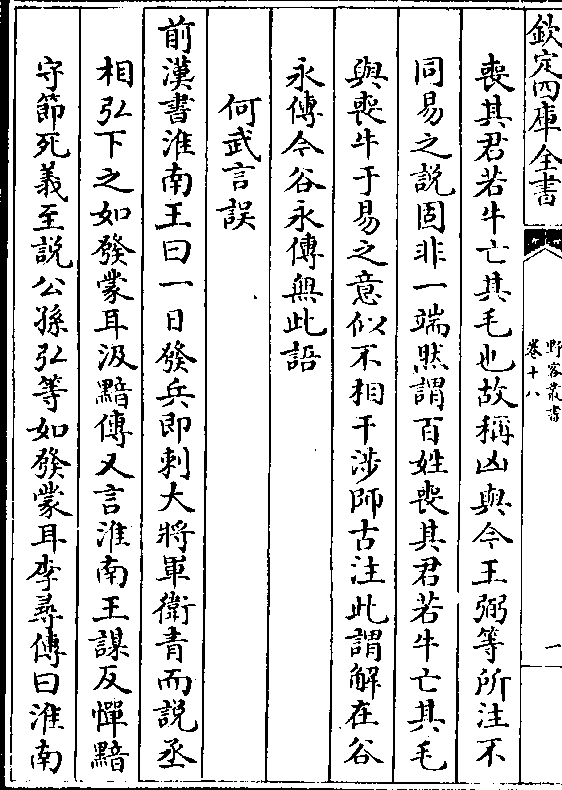 欽定四庫全書
野客叢書
卷十八
一
喪其君若牛亡其毛也故稱凶與今王弼等所注不
同易之説固非一端然謂百姓喪其君若牛亡其毛
與喪牛于易之意似不相干涉師古注此謂解在谷
永傳今谷永傳無此語
何武言誤
前漢書淮南王曰一日發兵即刺大將軍衛青而説丞
相弘下之如發蒙耳汲黯傳又言淮南王謀反憚黯
守節死義至説公孫弘等如發蒙耳李尋傳曰淮南